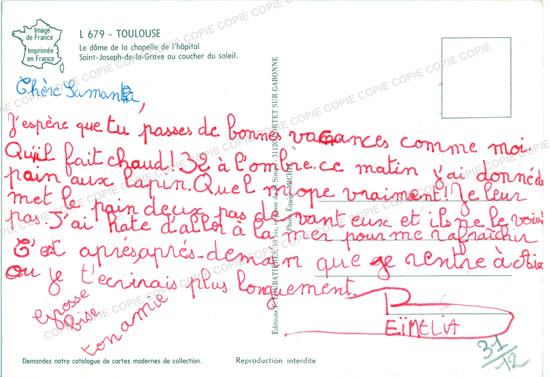 Image
de France
Imprimée
en France
L 679 - TOULOUSE
Le dôme de la chapelle de l'hôpital
Saint-Joseph-de-la-Grave au coucher du soleil.
Chère Samanta,
J'espère que tu passes de bonnes vacances comme moi.
Qu'il fait chaud! 32 à l'ombre. ce matin j'ai donné du
pain aux lapin. Quel miope vraiment! Je leur
met le pain deux pas devant eux et ils ne le voit
pas. J'ai hate d'aller à la mer pour me rafraîchir
C'est aprésaprés-demain que je rentre à Aix
ou je t'ecrirais plus longuement.
grosse
bise
ton amie
EÏMELIA
31
12
Demandez notre catalogue de cartes modernes de collection.
Reproduction interdite
COPIE COPIE COPIE COPIE COPIE COPIE